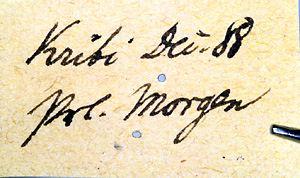 Kribi Dec. 88
Prl. Morgen